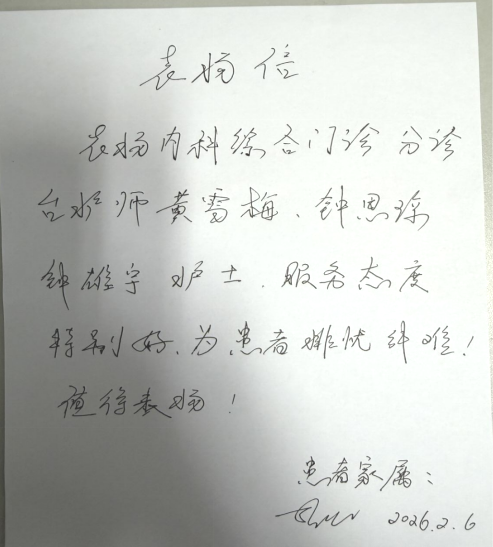 表扬信
表扬内科综合门诊分诊
台护师黄雪梅、钟思琼
钟雄宇护士.服务态度
特别好.为患者排忧解难!
值得表扬!
患者家属:
2026.2.6